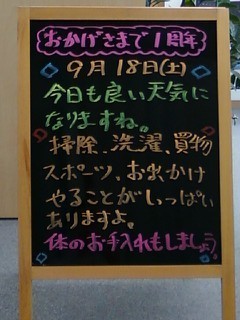 おかげさまで1周年
9月18日(土)
今日も良い天気に
なりますね。
掃除、洗濯、買物
スポーツ、お出かけ
やることがいっぱい
ありますよ。
体のお手入れもしましょう!